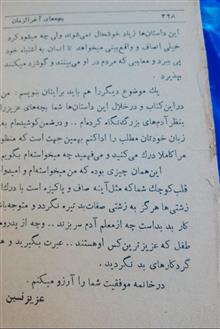 ۳۲۸ بچه‌های آخرالزمان
این داستان‌ها زیاد خوشحال نمی‌شوند، ولی چه میشود کرد
خیلی انصاف و واقع‌بینی میخواهد تا انسان به اشتباه خود
پی ببرد و معایبی که مردم در او می‌بینند و گوشزد میکنند
بپذیرد.
یک موضوع دیگر را هم باید برایتان بنویسم: من
در این کتاب و در خلال این داستان‌ها شما بچه‌های عزیز را
بنظر آدم‌های بزرگ نگاه کرده‌ام .. و در ضمن کوشیده‌ام به
زبان خودتان مطلب را ادا کنم بهمین جهت است که منظور
مرا کاملا درک می‌کنید و می‌فهمید چه میخواسته‌ام بگویم
این همان چیزی بوده که من میخواسته‌ام و امیدوا
قلب کوچک شما که مثل آینه صاف و پاکیزه است با درک
زشتی‌ها هرگز به زشتی صفات بد تیره نگردد و متوجه با
کار بد بد است چه از معلم آدم سر بزند .. و چه از پدر و م
طفل که عزیزترین کس او هستند .. عبرت بگیرید و ه
گرد کارهای بد نگردید.
در خاتمه موفقیت شما را آرزو میکنم.
عزیز نسین